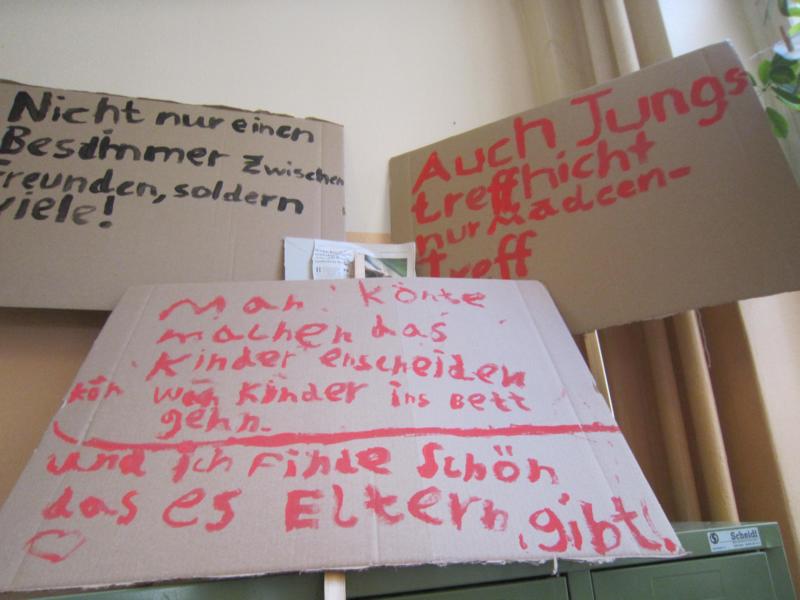 Nicht nur einen
Bestimmer zwischen
Freunden, soldern
viele!
Auch Jungs
treff nicht
nur Mädcen-
treff
Man könte
machen das
Kinder enscheiden
kön wan Kinder ins Bett
gehn.
und ich Finde Schön
das es Eltern gibt!
Scheidl